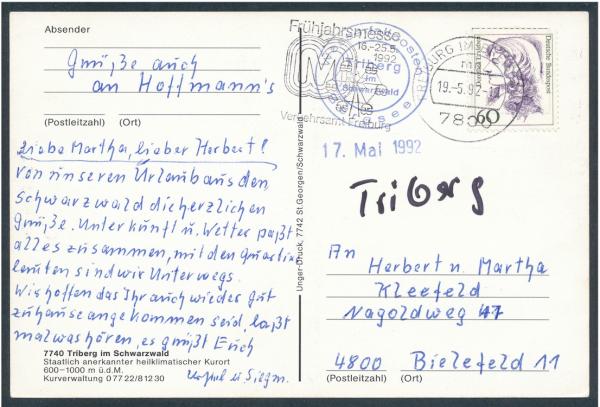 Absender
Grüße auch
an Hoffmann's
(Postleitzahl) (Ort)
Liebe Martha, lieber Herbert!
Von unseren Urlaub aus den
Schwarzwald die herzlichen
Grüße. Unterkunft u. Wetter paßt
alles zusammen, mit den Quartier
leuten sind wir Unterwegs.
Wir hoffen das Ihr auch wieder gut
zuhause angekommen seid, laßt
mal was hören, es grüßt Euch
u. Siegm.
7740 Triberg im Schwarzwald
Staatlich anerkannter heilklimatischer Kurort
600–1000 m ü.d.M.
Kurverwaltung 07722/81230
Unger-Druck, 7742 St. Georgen/Schwarzwald
Frühjahrsmesse
16.-25.5.
1992
Verkehrsamt Freiburg
Triberg
im
Schwarzwald
FREIBURG IM
19.-5.92
7800
Deutsche Bundespost
60
17. Mai 1992
Triberg
An
Herbert u. Martha
Kleefeld
Nagoldweg 47
4800 Bielefeld 11
(Postleitzahl) (Ort)